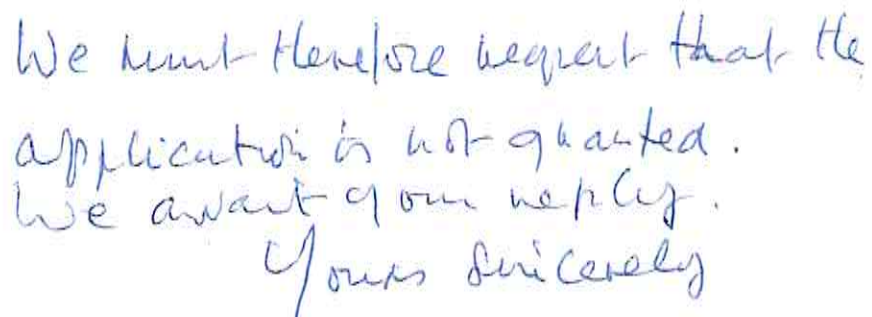 We must therefore request that the
application is not granted.
We await your reply.
Yours Sincerely